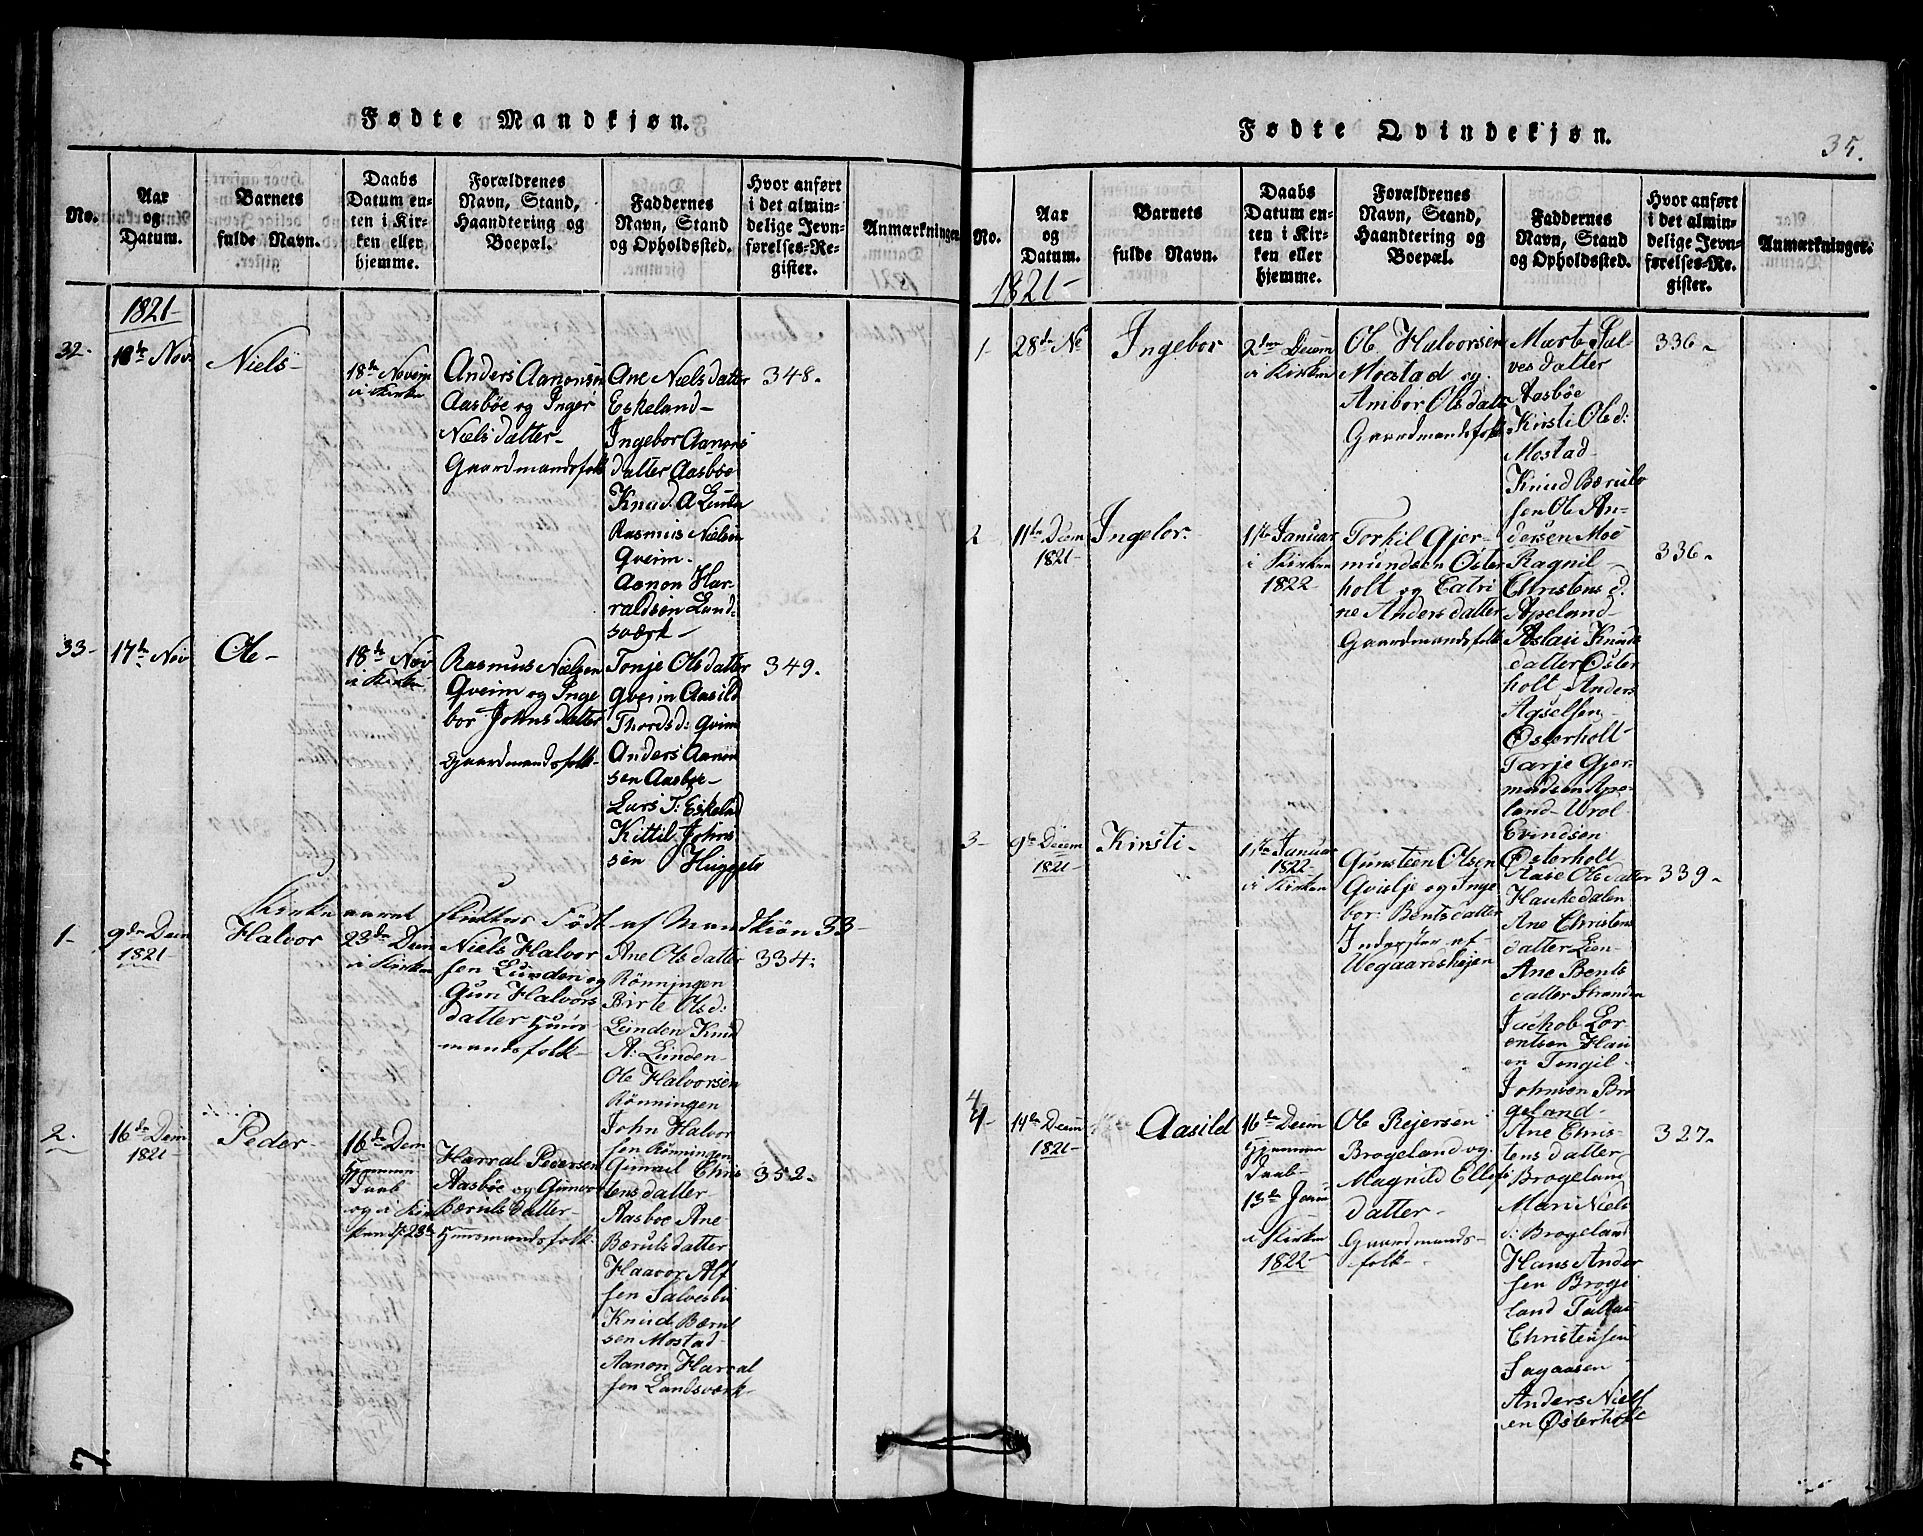 Fødte Mandkjøn.
No.
Aar
og
Datum.
Barnets
fulde Navn.
Daabs
Datum en-
ten i Kir-
ken eller
hjemme.
Forældrenes
Navn, Stand,
Haandtering og
Boepæl.
Faddernes
Navn, Stand
og Opholdssted.
Hvor anført
i det almin-
delige Jevn-
førelses-Re-
gister.
Anmærkninger.
1821
32.
18de Nov
Niels
18de Novem
i Kirken
Anders Aanonsen
Aasbøe og Inger
Niels datter
Gaardmandsfolk
Ane Niels datter
Eskeland
Ingebor Aanons
datter Aasbøe
Knud A Lunden
Rasmus Nielsen
Qveim
Aanon Har-
raldsen Land-
svært
348.
33
17de Nov
Ole
18de Nov
i Kirken
Rasmus Nielsen
Qveim og Inge
bor Johns datter
Gaardmandsfolk
Tonje Ols datter
Qveim Aasild
Thords d: Qveim
Anders Aanon
sen Aasbøe
Lars T: Eskeland
Kittil Johns
sen Huggete
349.
Kirke aaret slutter Født af Mandkiøn 33
1
9de Dem
1821
Halvor
23de Dem
i Kirken
Niels Halvor
sen Lunden og
Guri Halvors
datter Huus
mandsfolk
Ane Ols datter
Rønningen
Birte Ols d:
Lunden Knud
A: Lunden
Ole Halvorsen
Rønningen
John Halvor
sen Rønningen
334.
2.
16de Dem
1821
Peder
16de Dem
hjemme
Daab
og i Kir
ken d: 23de
Harral Pedersen
Aasbøe og Gunvor
Bæruls datter
Huusmandsfolk
Chris
tens datter
Aasboe Ane
Bæruls datter
Haavor Alf
sen Salvesbu
Knud Bærul
sen Mostad
Aanon Harral
sen Landsværk
352.
7.
Fødte Qvindekjøn.
35.
No.
Aar
og
Datum.
Barnets
fulde Navn.
Daabs
Datum en-
ten i Kir-
ken eller
hjemme.
Forældrenes
Navn, Stand,
Haandtering og
Boepæl.
Faddernes
Navn, Stand
og Opholdssted.
Hvor anført
i det almin-
delige Jevn-
førelses-Re-
gister.
Anmærkninger.
1821
1
28de No
Ingebor
2den Decem
i Kirken
Ole Halvorsen
Moestad og
Ambor Ols datter
Gaardmandsfolk
Marte Sal-
ves datter
Aasbøe
Kirsti Ols d:
Mostad
Knud Bærul
sen Ole An-
dersen Moe
336
2
11te Decem
1821
Ingebor
1ste Januar
i Kirken
1822
Torkil Gjer-
mundsen Øster
holt og Catri
ne Anders datter
Gaardmandsfolk
Ragnil
Christens d.
Apeland
Aslau Knuds
datter Øster
holt Anders
Agselsen
Østerholt
Tarje Gjer
mundsen Ape-
land Wrol
Evindsen
Østerholt
336
3
9de Decem
1821
Kirsti
1ste Januar
1822
i Kirken
Gunsteen Olsen
Qvislje og Inge
bor Bents datter
Inderster af
Wegaarisheien
Aase Ols datter
Haukedalen
Ane Christens
datter Lien
Ane Bents
datter Stranden
Jachob Lor
entsen Hau
en Tengil
Johnsen Bro
geland
339
4
14de Decem
1821
Aasild
16de Decem
hjemme
Daab
13de Janu
i Kirken
1822
Ole Rejersen
Brogeland og
Magnild Ellefs
datter
Gaardmands-
folk
Ane Chris-
tens datter
Brogeland
Mari Niels
d: Brogeland
Hans Ander
sen Broge
land Tallac
Christensen
Sagaasen
Anders Niels
en Østerholt
327.